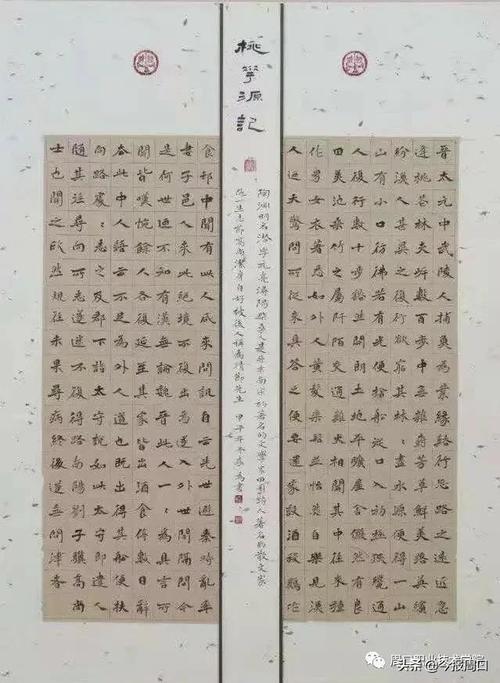 晋太元中武陵人捕魚為業緣路行忘路遠近忽
逢桃花林夾岸數百步中無雜樹芳草鮮美落英繽
紛漁人甚異之復行欲窮其林林盡水源便得一山
山有小口彷彿若有光便捨船從口入初極狹纔通
人復行數十步豁然開朗土地平曠屋舍儼然有良
田美池桑竹之屬阡陌交通雞犬相聞其中往來種
作男女衣著悉如外人黃髮垂髫並怡然自樂見漁
人迺大驚問所從來具答之便要還家設酒殺雞作
桃華源記
陶淵明名潛字元亮潯陽柴桑人是著名的文學家田園詩人著名的散文家
一生志節高尚潔身自好被後人稱為靖節先生 甲午年冬 為書
食邨中聞有此人咸來問訊自云先世避秦時亂率
妻子邑人來此絕境不復出焉遂入外世間隔問今
是何世迺不知有漢無論魏晉此人一一為所
聞皆嘆惋餘人各復延至其家皆出酒食停數日辭
去此中人語云不足為外人道也既出得其船便扶
向路處處志之及郡下詣太守說如此太守即遣人
隨其往尋向所志遂迷不復得路南陽劉子驥高尚
士也聞之欣然規往未果尋病終後遂無問津者
周口职业技术学院
头条 @今报周口